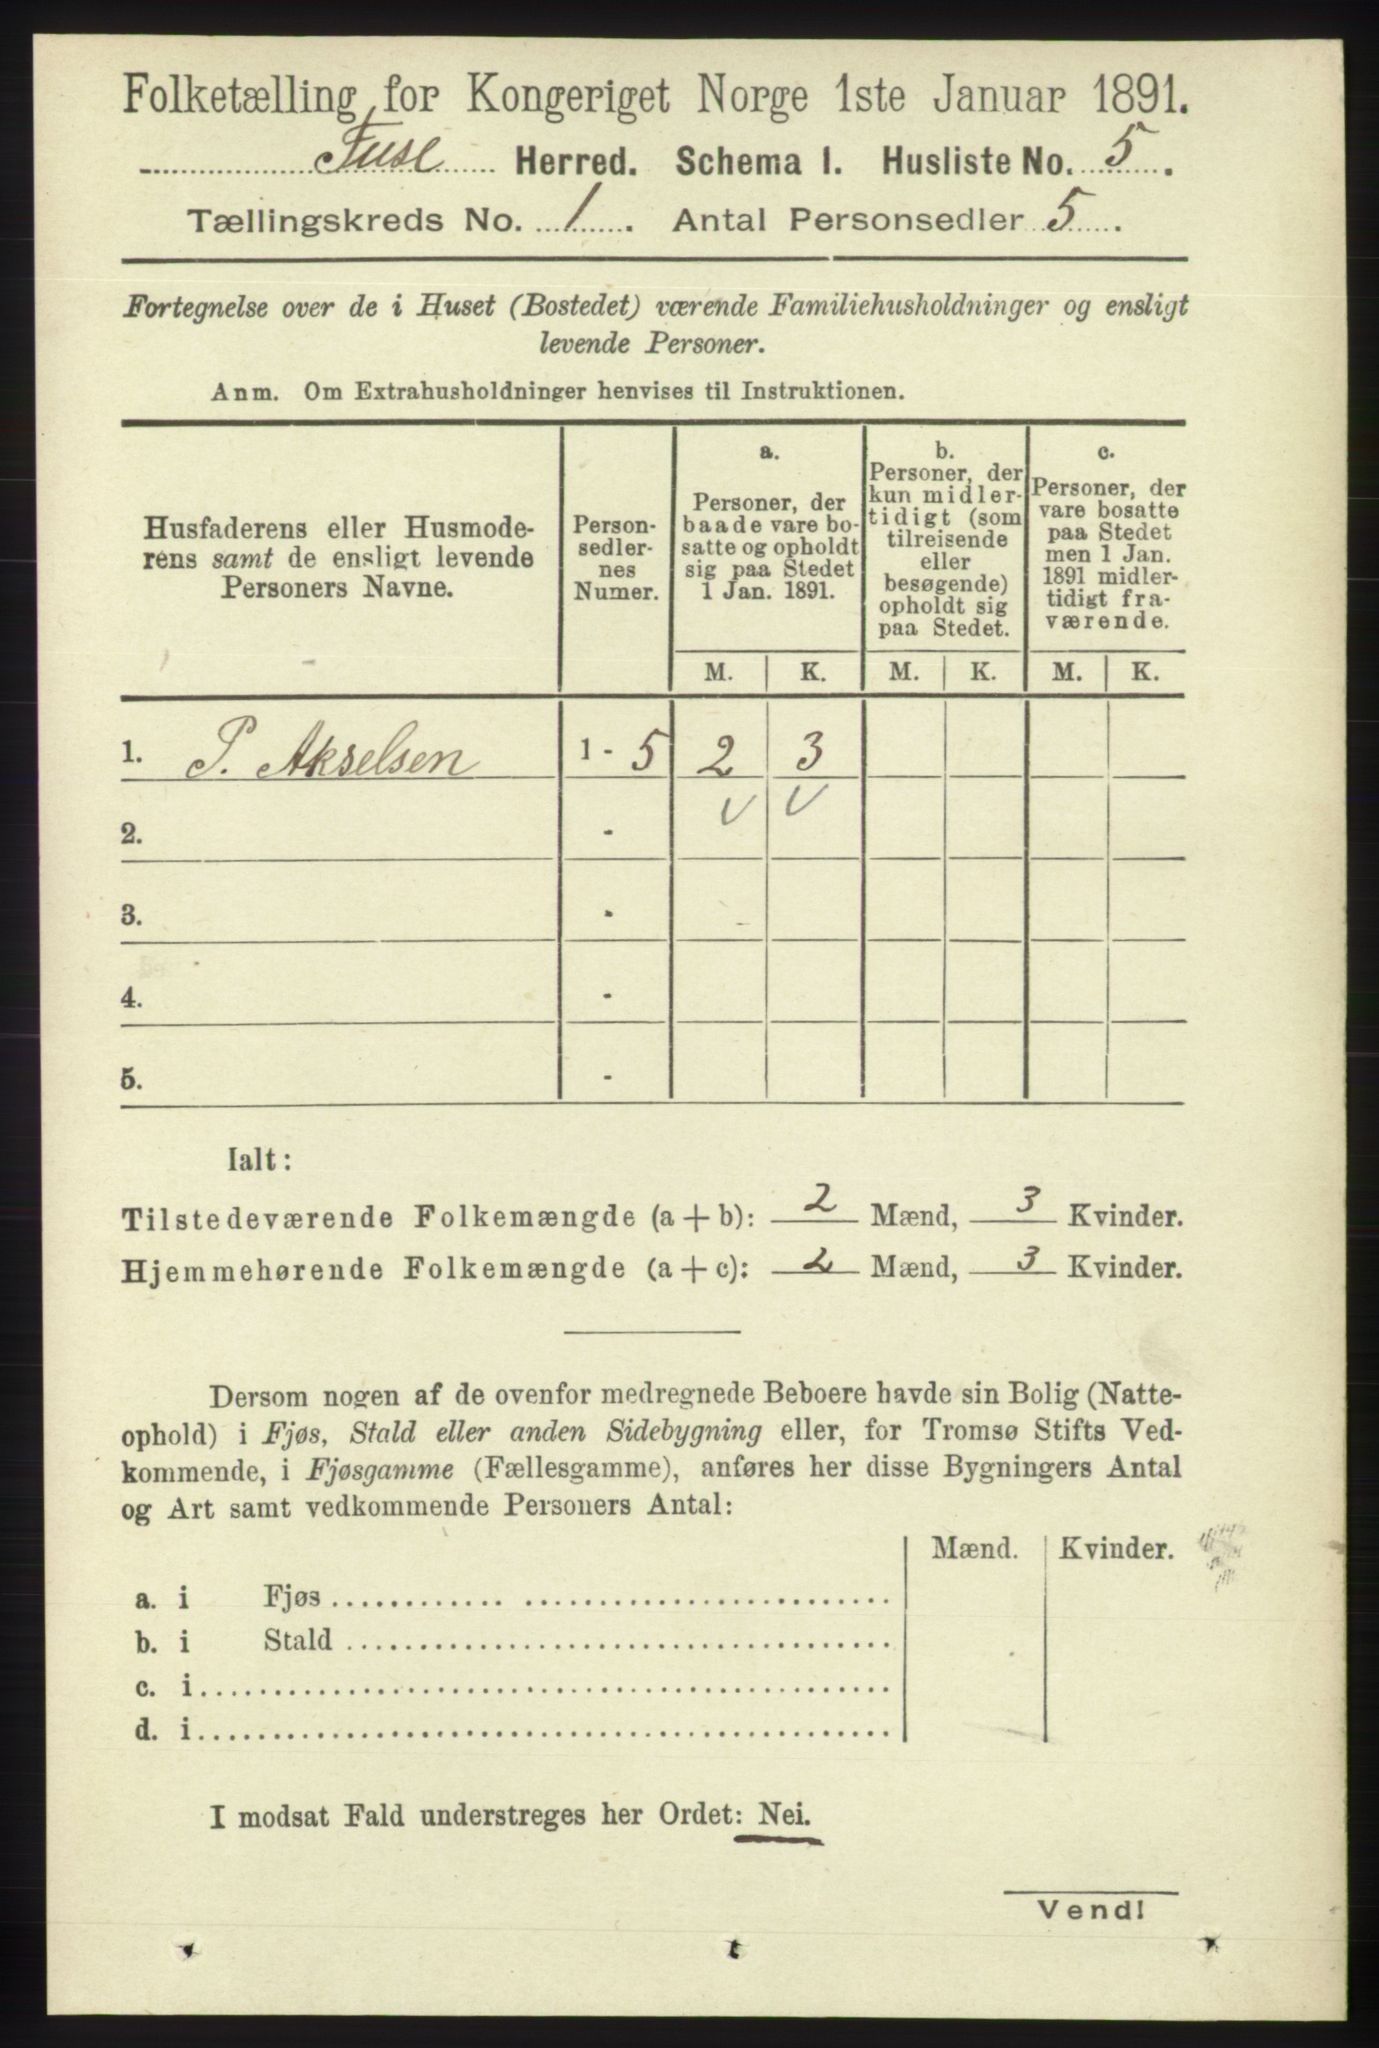 Folketælling for Kongeriget Norge 1ste Januar 1891.
Fuse Herred. Schema 1. Husliste No. 5.
Tællingskreds No. 1. Antal Personsedler 5.
Fortegnelse over de i Huset (Bostedet) værende Familiehusholdninger og ensligt
levende Personer.
Anm. Om Extrahusholdninger henvises til Instruktionen.
Husfaderens eller Husmode-
rens samt de ensligt levende
Personers Navne.
Person-
sedler-
nes
Numer.
a.
Personer, der
baade vare bo-
satte og opholdt
sig paa Stedet
1 Jan. 1891.
b.
Personer, der
kun midler-
tidigt (som
tilreisende
eller
besøgende)
opholdt sig
paa Stedet.
c.
Personer, der
vare bosatte
paa Stedet
men 1 Jan.
1891 midler-
tidigt fra-
værende.
M. K. M. K. M. K.
1. P. Akselsen 1 - 5 2 3
2. -
3. -
4. -
5. -
Ialt:
Tilstedeværende Folkemængde (a + b): 2 Mænd, 3 Kvinder.
Hjemmehørende Folkemængde (a + c): 2 Mænd, 3 Kvinder.
Dersom nogen af de ovenfor medregnede Beboere havde sin Bolig (Natte-
ophold) i Fjøs, Stald eller anden Sidebygning eller, for Tromsø Stifts Ved-
kommende, i Fjøsgamme (Fællesgamme), anføres her disse Bygningers Antal
og Art samt vedkommende Personers Antal:
Mænd. Kvinder.
a. i Fjøs
b. i Stald
c. i
d. i
I modsat Fald understreges her Ordet: Nei.
Vend!